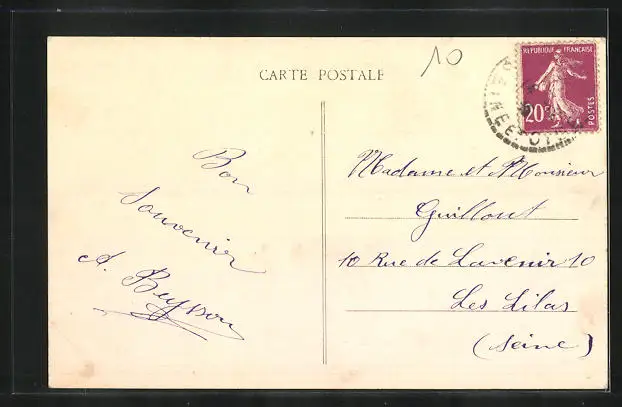 CARTE POSTALE
10
REPUBLIQUE FRANÇAISE
20c
POSTES
Bon
Souvenir
A. Buysson
Madame et Monsieur
Guillout
10 Rue de Lavenir 10
Les Lilas
(Seine)